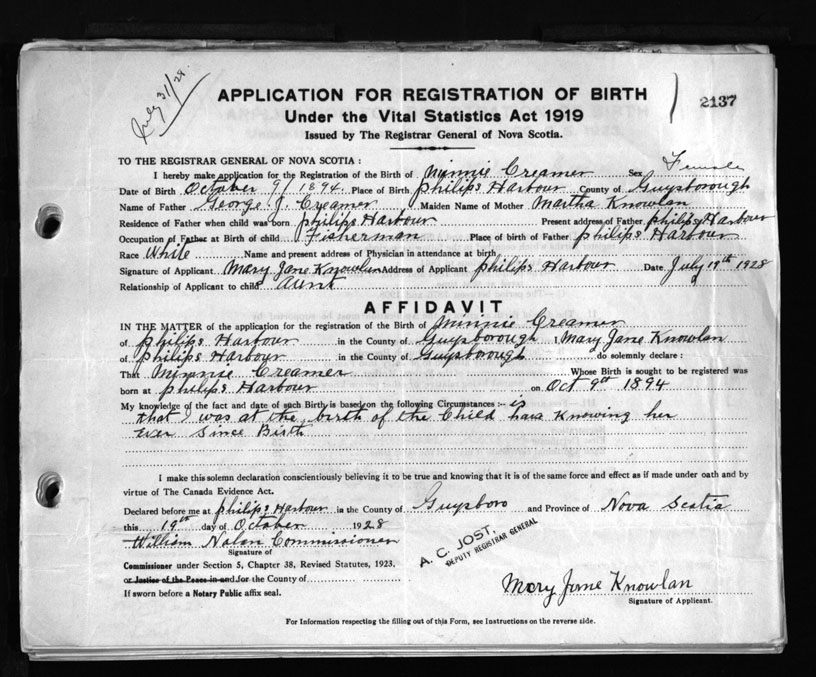 July 31/28
APPLICATION FOR REGISTRATION OF BIRTH
2137
Under the Vital Statistics Act 1919
Issued by The Registrar General of Nova Scotia.
TO THE REGISTRAR GENERAL OF NOVA SCOTIA :
I hereby make application for the Registration of the Birth of Minnie Creamer Sex Female
Date of Birth October 9/1894. Place of Birth philips Harbour County of Guysborough
Name of Father George J. Creamer Maiden Name of Mother Martha Knowlan
Residence of Father when child was born philips Harbour Present address of Father philips Harbour
Occupation of Father at Birth of child Fisherman Place of birth of Father philips Harbour
Race White Name and present address of Physician in attendance at birth
Signature of Applicant Mary Jane Knowlan Address of Applicant philips Harbour Date July 19th 1928
Relationship of Applicant to child Aunt
AFFIDAVIT
IN THE MATTER of the application for the registration of the Birth of Minnie Creamer
of philips Harbour in the County of Guysborough I, Mary Jane Knowlan
of philips Harbour in the County of Guysborough do solemnly declare :
That Minnie Creamer Whose Birth is sought to be registered was
born at philips Harbour on Oct 9th 1894
My knowledge of the fact and date of such Birth is based on the following Circumstances :- is
that I was at the birth of the Child have Knowing her
ever since Birth
I make this solemn declaration conscientiously believing it to be true and knowing that it is of the same force and effect as if made under oath and by
virtue of The Canada Evidence Act.
Declared before me at philips Harbour in the County of Guysboro and Province of Nova Scotia
this 19th day of October 1928
William Nolan Commissioner
Signature of
A. C. JOST,
DEPUTY REGISTRAR GENERAL
Commissioner under Section 5, Chapter 38, Revised Statutes, 1923,
or Justice of the Peace in and for the County of
Mary Jane Knowlan
If sworn before a Notary Public affix seal.
Signature of Applicant.
For Information respecting the filling out of this Form, see Instructions on the reverse side.